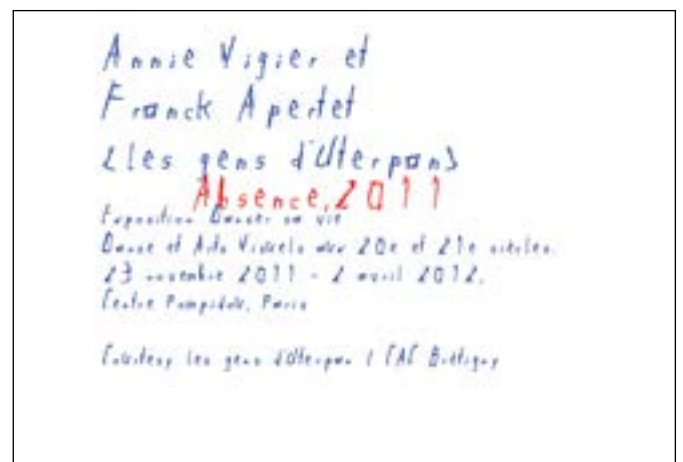 Annie Vigier et
Franck Apertet
(les gens d'Uterpan)
Absence, 2011
Exposition Danser sa vie
Danse et Arts Visuels aux 20e et 21e siècles.
23 novembre 2011 - 2 avril 2012.
Centre Pompidou, Paris
Courtesy les gens d'Uterpan / CAC Brétigny